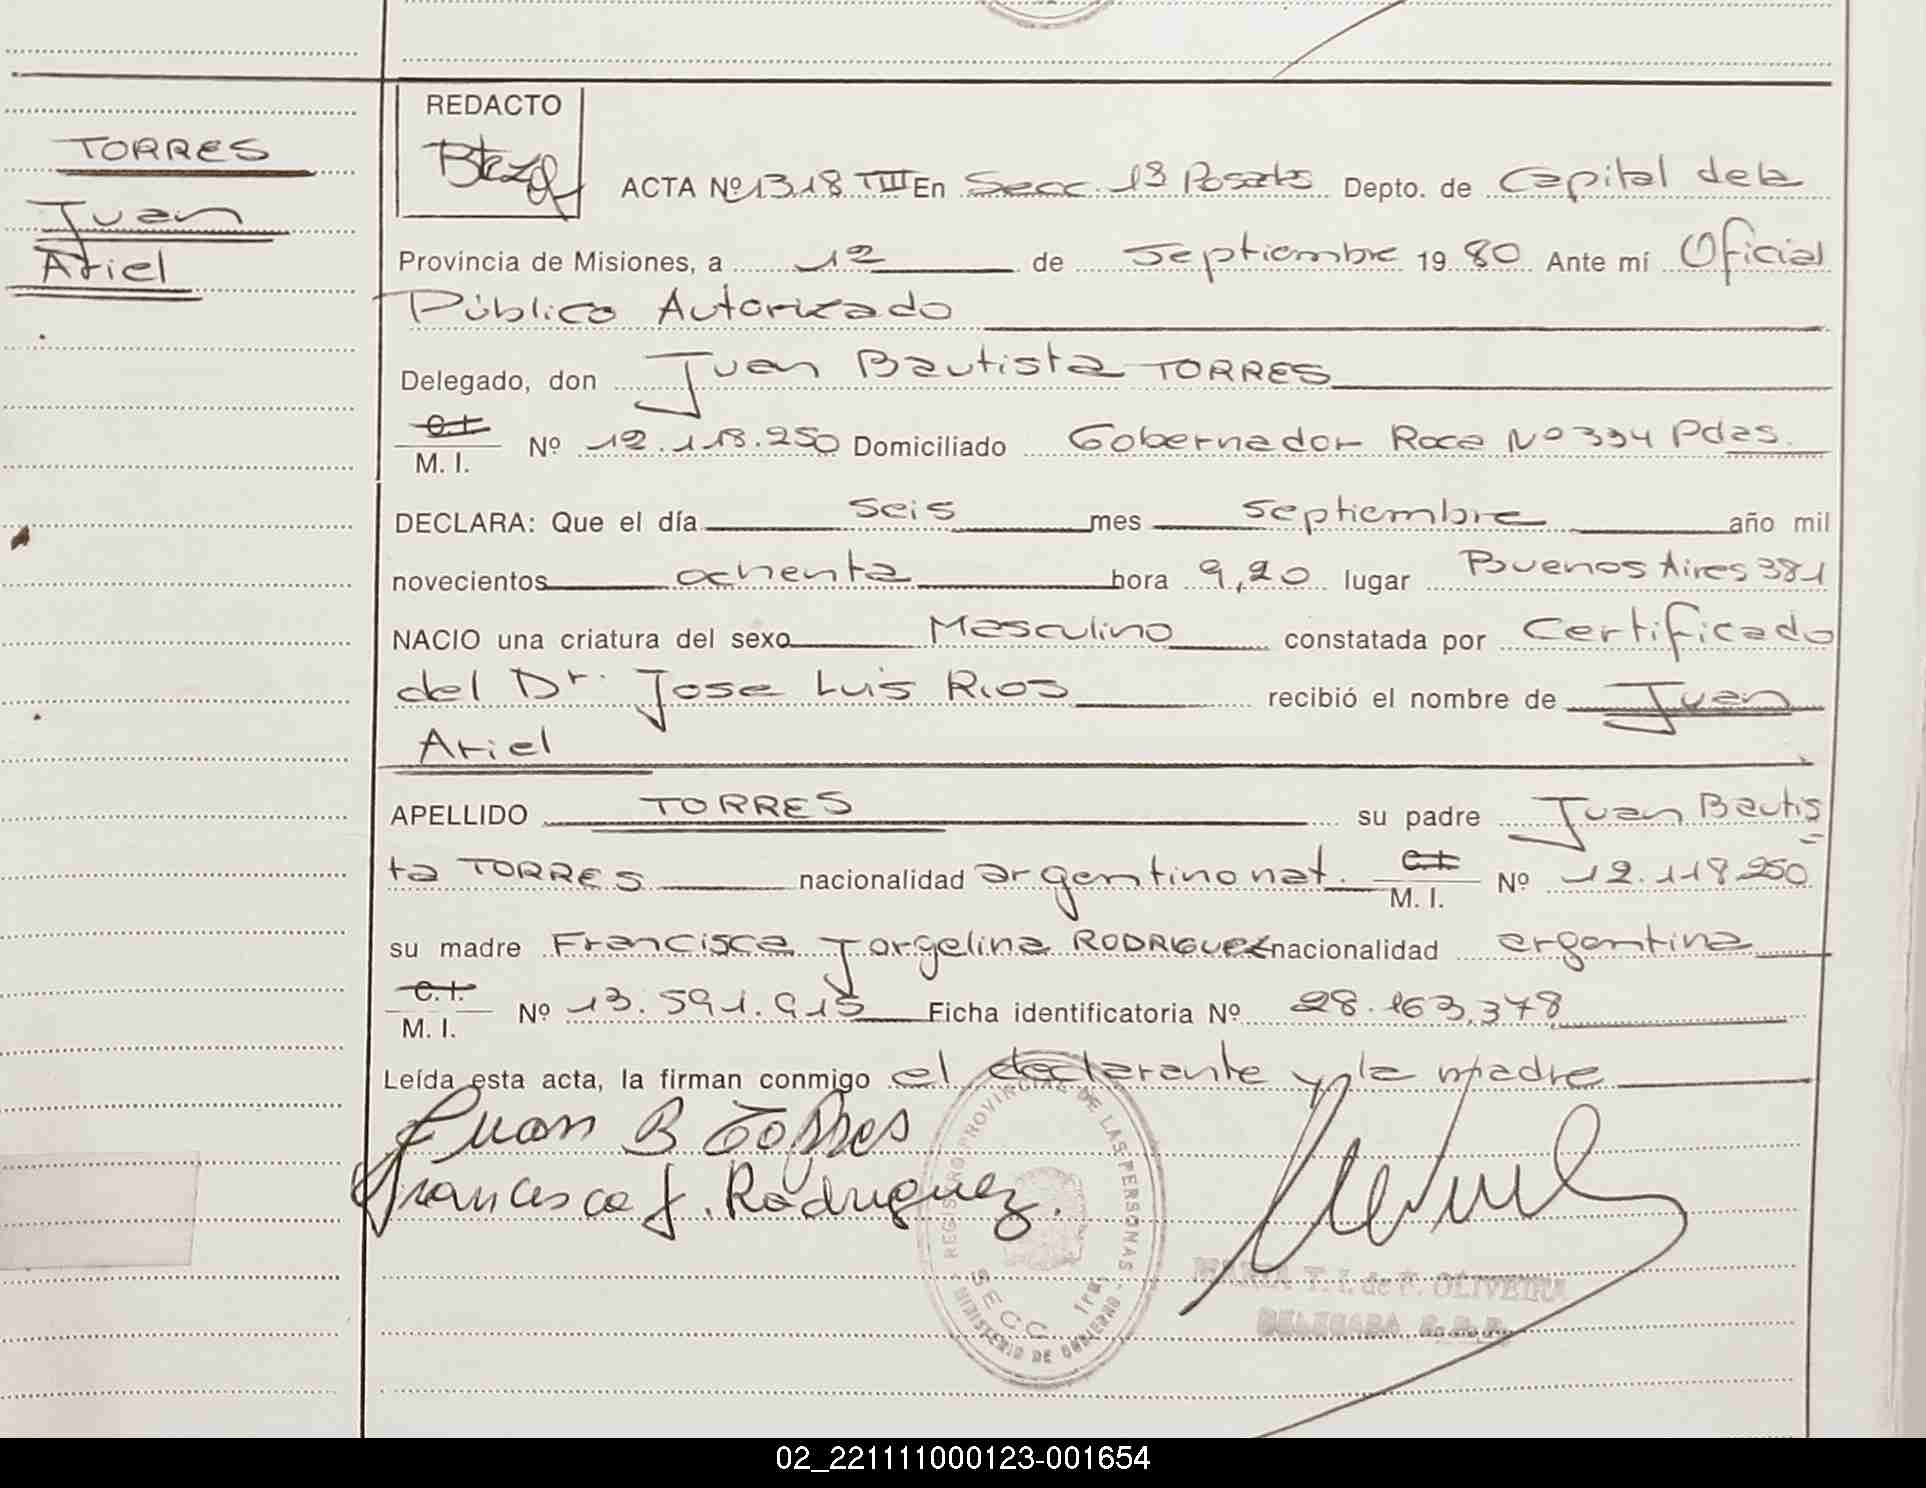 TORRES
Juan
Ariel
REDACTO
ACTA Nº 1318 TIII En Secc. 1ª Posadas Depto. de Capital de la
Provincia de Misiones, a 12 de Septiembre 1980 Ante mí Oficial
Público Autorizado
Delegado, don Juan Bautista TORRES
C.I.
M. I. Nº 12.118.250 Domiciliado Gobernador Roca Nº 334 Pdas.
DECLARA: Que el día seis mes septiembre año mil
novecientos ochenta hora 9,20 lugar Buenos Aires 381
NACIO una criatura del sexo Masculino constatada por Certificado
del Dr. Jose Luis Rios recibió el nombre de Juan
Ariel
APELLIDO TORRES su padre Juan Bautis
ta TORRES nacionalidad argentino nat. C.I. M. I. Nº 12.118.250
su madre Francisca Jorgelina RODRIGUEZ nacionalidad argentina
C.I.
M. I. Nº 13.591.915 Ficha identificatoria Nº 28.163.378
Leída esta acta, la firman conmigo el declarante y la madre
Juan B Torres
Francisca J. Rodriguez.
REGISTRO PROVINCIAL DE LAS PERSONAS
SECC. 1ra.
MINISTERIO DE GOBIERNO
MARIA T. I. de F. OLIVEIRA
DELEGADA
02_221111000123-001654